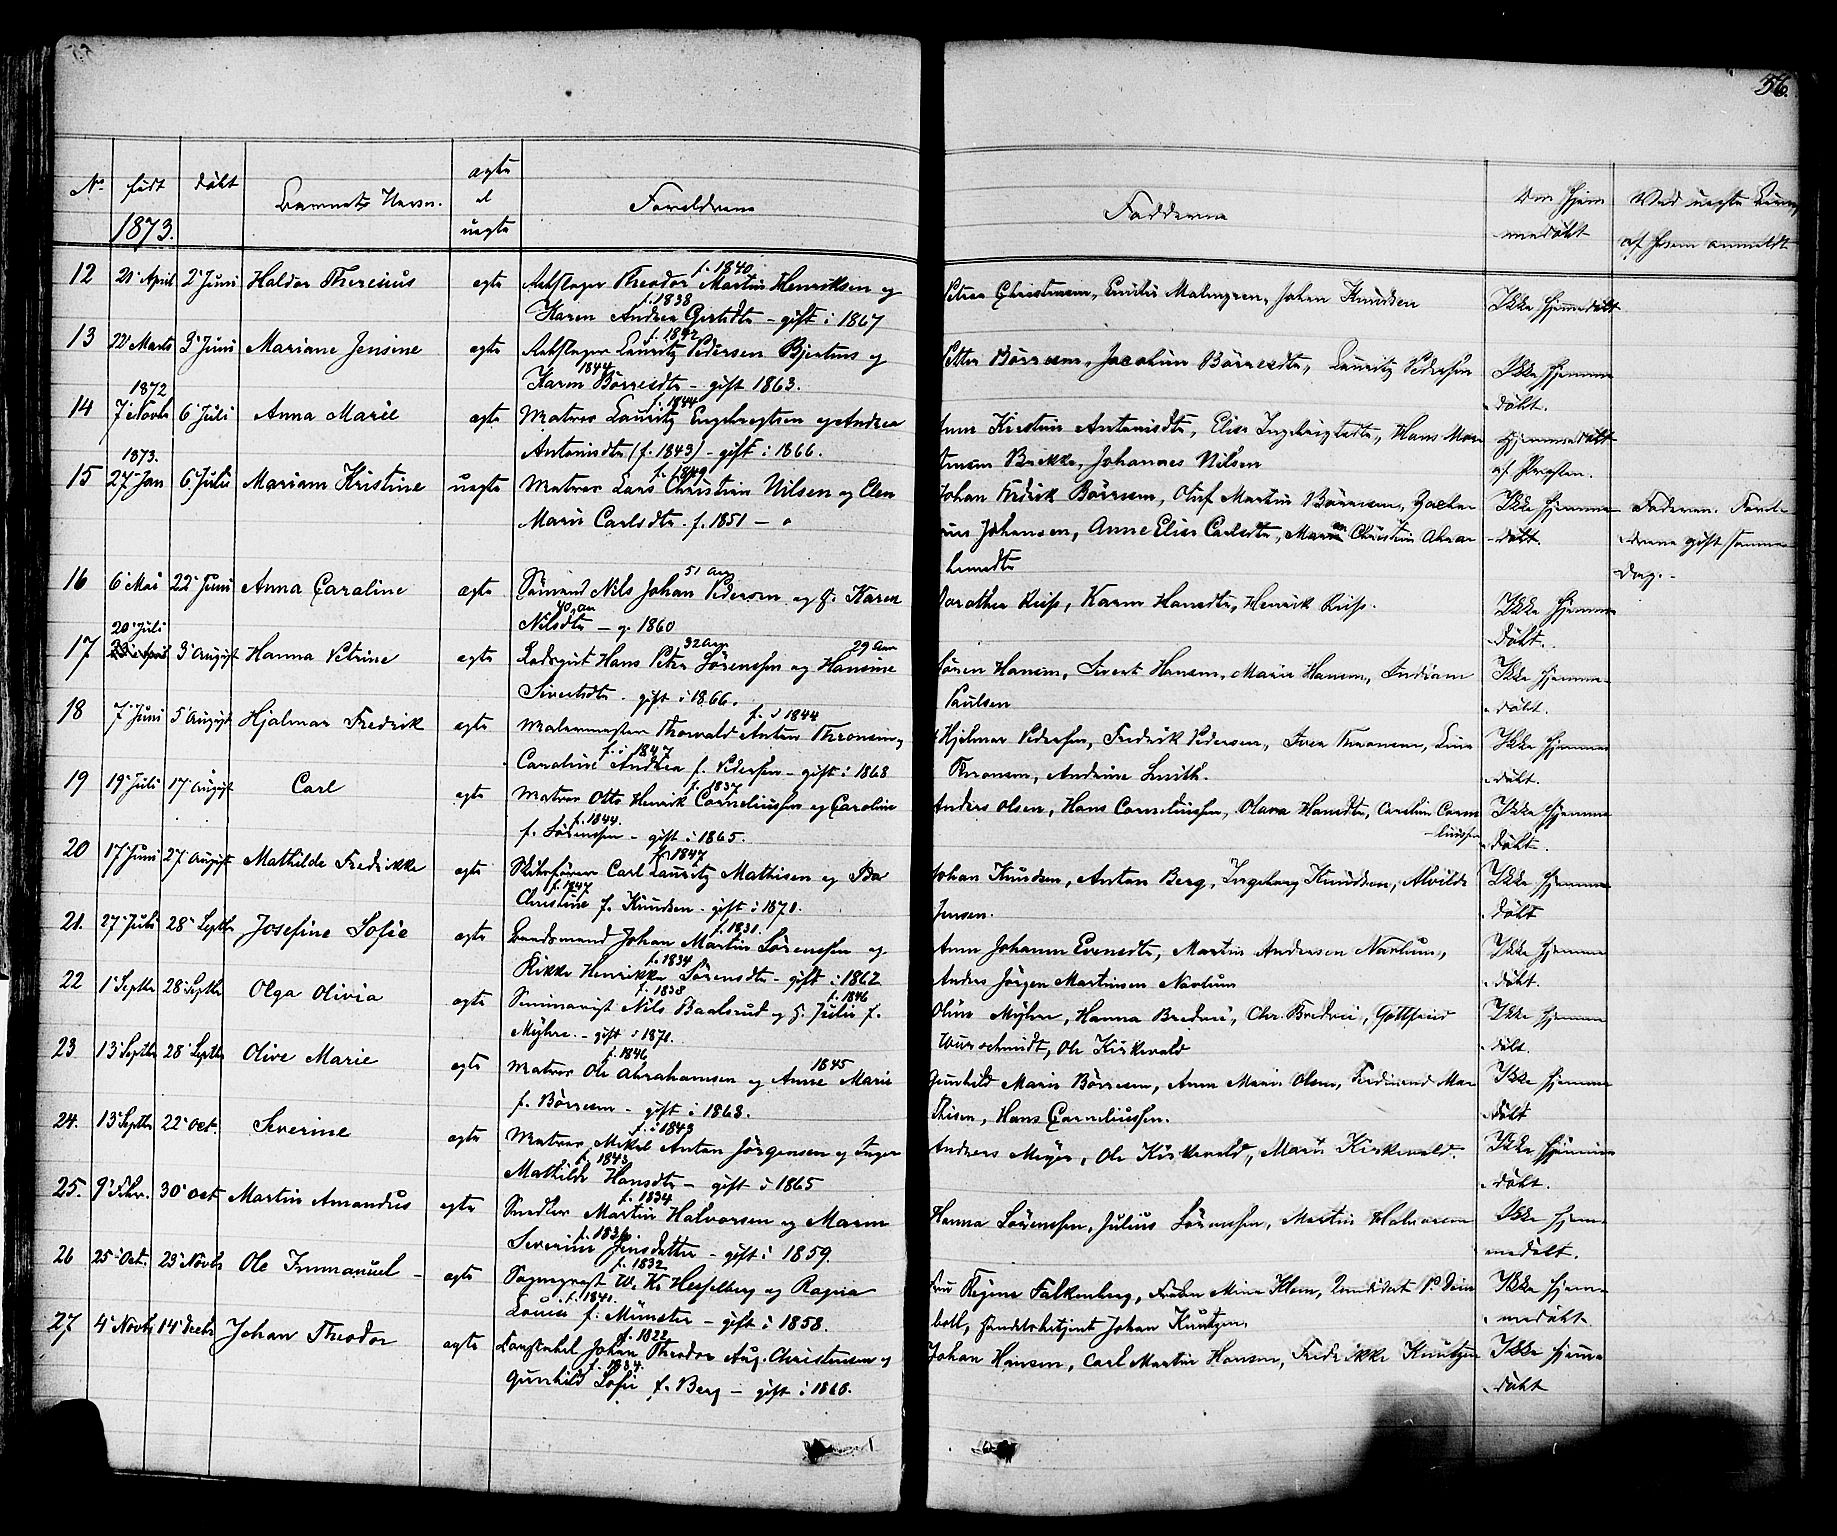 56.
No født døbt Barnets Navn. ægte el uægte Forældrene Fadderne Om hjemmedøbt Ved uægte Børn, af hvem anmeldt
1873.
12 21' April 2' Juni Haldor Theresius ægte Theodor Martin Henriksen og f. 1840
Karen Andrea Gertsdtr - gift i 1867 f. 1838
Petrea Christensen, Emilie Malmgreen, Johan Knudsen Ikke hjemmedøbt
13 22' Marts 3' Juni Mariane Jensine ægte Lauritz Pedersen Bjertnes og f. 1842
Karen Børresdtr - gift 1863. 1844
Petter Børresen, Jacobine Børresdtr, Lauritz Pedersen Ikke hjemme
døbt.
1872
14 7' Novbr 6' Juli Anna Marie ægte Matros Lauritz Engebregtsen og Andrea f. 1844
Antonisdtr (f. 1843) - gift i 1866.
Kirstine Antonisdtr, Elise Ingebrigtsdtr, Hans Mar
tinsen Brekke, Johannes Nilsen
Hjemmedøbt
af Præsten.
1873.
15 27' Jan 6' Juli Mariam Kristine uægte Matros Lars Christian Nilsen og Elen f. 1849
Marie Carlsdtr. f. 1851 -
Johan Fredrik Børresen, Oluf Martin Børresen,
Johansen, Anne Elise Carlsdtr, Maren Christine Abra
hamsdtr
Ikke hjemme
døbt.
Faderen. Foræl
drene gift samme
Dag. -
16 6' Mai 22' Juni Anna Caroline ægte Sømand Nils Johan Pedersen og H. Karen 51 Aar
Nilsdtr - g. 1860 40 Aar
Dorothea Riis, Karen Hansdtr, Henrik Riis. Ikke hjemme
døbt.
20' Juli
17 3' August Hanna Petrine ægte Hans Peter Sørenssen og Hansine 32 Aar 29 Aar
Sivertsdtr - gift i 1866.
Søren Hansen, Sivert Hansen, Marie Hansen, Indiane
Paulsen
Ikke hjemme
døbt.
18 7' Juni 5' August Hjalmar Fredrik ægte Malermester Thorvald Anton Thronsen og f. i 1844
Caroline Andrea f. Pedersen - gift i 1868 f. i 1847
Hjalmar Pedersen, Fredrik Pedersen, Iver Thronsen, Lina
Thronsen, Andrine Smith.
Ikke hjemme
døbt.
19 19' Juli 17' August Carl ægte Matros Otto Henrik Corneliussen og Caroline f. 1837
f. Sørenssen - gift i 1865. f. 1844.
Anders Olsen, Hans Corneliussen, Olava Hansdtr, Caroline Corne
liussen
Ikke hjemme
døbt.
20 17' Juni 27' August Mathilde Fredrikke ægte Skibsfører Carl Lauritz Mathisen og Ida f. 1847
Christine f. Knudsen - gift i 1870. f. 1847
Johan Knudsen, Anton Berg, Ingeborg Knudsen, Alvilde
Jensen.
Ikke hjemme
døbt
21. 27' Juli 28' Septbr Josefine Sofie ægte Baadsmand Johan Martin Sørenssen og f. 1831.
Rikke Henrikke Sørensdtr - gift i 1862 f. 1834
Anne Johanne Evensdtr, Martin Andersen Navlum,
Anders Jørgen Martinsen Navlum
Ikke hjemme
døbt.
22 1' Septbr 28' Septbr Olga Olivia ægte Seminarist Nils Baalsrud og H. Julie f. f. 1838 f. 1846
Myhre. - gift i 1870.
Oline Myhre, Hanna Bredvei, Chr. Bredvei, Gottfried
Wurschmidt, Ole Kirkevald
Ikke hjemme
døbt.
23 13' Septbr 28' Septbr Olive Marie ægte Matros Ole Abrahamsen og Anne Marie f. 1846 1845
f. Børresen - gift i 1868.
Gunhild Marie Børresen, Anne Marie Olsen, Ferdinand Ma
thisen, Hans Corneliussen.
Ikke hjemme
døbt
24. 13' Septbr 22' Oct. Severine ægte Matros Mikal Anton Jørgensen og Inger f. i 1843
Mathilde Hansdtr - gift i 1865 f. 1843
Andreas Meyer, Ole Kirkevald, Marie Kirkevald. Ikke hjemme
døbt.
25. 30' Oct Martin Amandus ægte Snedker Martin Halvorsen og Maren f. 1834
Severine Jensdatter - gift i 1859. f. 1836
Hanna Sørenssen, Julius Sørenssen, Martin Halvorsen Ikke hjem
medøbt.
26 25' Oct. 23' Novbr Ole Immanuel ægte Sogneprest W. K. Hesselberg og Ragna f. 1832
Lovise f. Münster - gift i 1858. f. 1841.
Fru Regine Falkenberg, Frøken Mina Klem, Landidat P.
boll, Handelsbetjent Johan Knutzen.
Ikke hjem
medøbt
27 4' Novbr 14' Decbr Johan Theodor ægte Johan Theodor Aug. Christensen og f. 1822
Gunhild Sofie f. Berg - gift i 1860. f. 1834.
Johan Hansen, Carl Martin Hansen, Fredrikke Knutzen Ikke hjemme
døbt